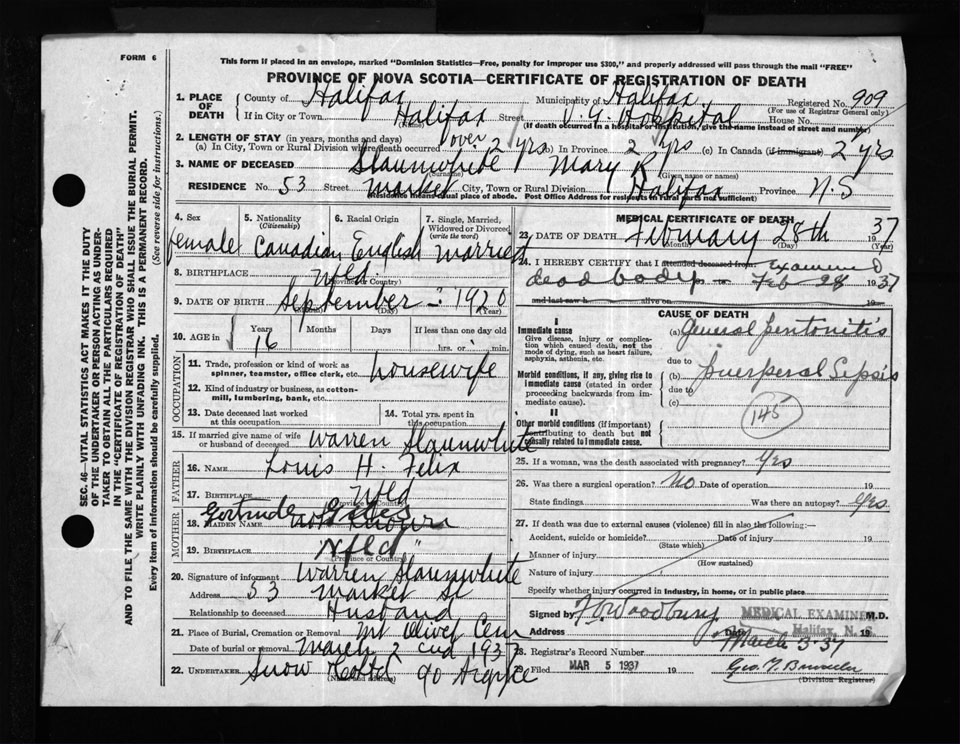 FORM 6
This form if placed in an envelope, marked "Dominion Statistics—Free, penalty for improper use $300," and properly addressed will pass through the mail "FREE"
PROVINCE OF NOVA SCOTIA—CERTIFICATE OF REGISTRATION OF DEATH
1. PLACE OF DEATH County of Halifax Municipality of Halifax Registered No. 909
(For use of Registrar General only)
If in City or Town Halifax Street V. G. Hospital House No.
(If death occurred in a hospital or institution, give the name instead of street and number)
2. LENGTH OF STAY (in years, months and days)
(a) In City, Town or Rural Division where death occurred over 2 yrs (b) In Province 2 yrs (c) In Canada (if immigrant) 2 yrs
3. NAME OF DECEASED Slaunwhite Mary R
(Surname) (Given name or names)
RESIDENCE No. 53 Street Market City, Town or Rural Division Halifax Province N.S
(Residence means usual place of abode. Post Office Address for residents in rural parts not sufficient)
4. Sex female
5. Nationality (Citizenship) Canadian
6. Racial Origin English
7. Single, Married, Widowed or Divorced (write the word) Married
8. BIRTHPLACE Nfld.
(Province or Country)
9. DATE OF BIRTH September ? 1920
(Month) (Day) (Year)
10. AGE in Years 16 Months Days If less than one day old hrs. or min.
OCCUPATION
11. Trade, profession or kind of work as spinner, teamster, office clerk, etc. housewife
12. Kind of industry or business, as cotton-mill, lumbering, bank, etc.
13. Date deceased last worked at this occupation
14. Total yrs. spent in this occupation
15. If married give name of wife or husband of deceased Warren Slaunwhite
FATHER
16. NAME Louis H. Felix
17. BIRTHPLACE Nfld
(Province or Country)
MOTHER
18. MAIDEN NAME Gertrude Not Known
19. BIRTHPLACE Nfld "
(Province or Country)
20. Signature of informant Warren Slaunwhite
Address 53 Market St
Relationship to deceased Husband
21. Place of Burial, Cremation or Removal Mt Olivet Cem
Date of burial or removal March 2nd 1937
22. UNDERTAKER Snow Co Ltd 90 Argyle
(Name and address)
MEDICAL CERTIFICATE OF DEATH
23. DATE OF DEATH February 28th 1937
(Month) (Day) (Year)
24. I HEREBY CERTIFY that I attended deceased from Examined
dead body Feb 28 1937
and last saw h alive on 19
CAUSE OF DEATH
I
Immediate cause
Give disease, injury or complication which caused death, not the mode of dying, such as heart failure, asphyxia, asthenia, etc.
(a) General Peritonitis
due to
Morbid conditions, if any, giving rise to immediate cause (stated in order proceeding backwards from immediate cause).
(b) Puerperal Sepsis
due to
(c)
145
II
Other morbid conditions (if important) contributing to death but not causally related to immediate cause.
25. If a woman, was the death associated with pregnancy? Yes
26. Was there a surgical operation? No Date of operation 19
State findings Was there an autopsy? Yes
27. If death was due to external causes (violence) fill in also the following:—
Accident, suicide or homicide? Date of injury 19
(State which)
Manner of injury
(How sustained)
Nature of injury
Specify whether injury occurred in Industry, in home, or in public place
Signed by F. V. Woodbury M.D.
MEDICAL EXAMINER
Address Date 19
Halifax, N. S.
March 3-37
28. Registrar's Record Number
29. Filed MAR 5 1937 19
(Division Registrar)
SEC. 46—VITAL STATISTICS ACT MAKES IT THE DUTY
OF THE UNDERTAKER OR PERSON ACTING AS UNDER-
TAKER TO OBTAIN ALL THE PARTICULARS REQUIRED
IN THE "CERTIFICATE OF REGISTRATION OF DEATH"
AND TO FILE THE SAME WITH THE DIVISION REGISTRAR WHO SHALL ISSUE THE BURIAL PERMIT.
WRITE PLAINLY WITH UNFADING INK. THIS IS A PERMANENT RECORD.
Every item of information should be carefully supplied. (See reverse side for instructions.)